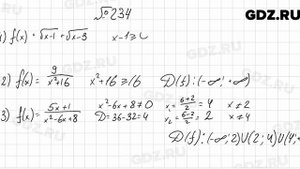 GDZ.RU
№234
1) f(x) = √x-1 + √x-3   x-1≥
2) f(x) = 9/(x²+16)   x²+16 ≥16   D(f): (-∞; +∞)
3) f(x) = (5x+1)/(x²-6x+8)   x²-6x+8≠0   x₁ = (6+2)/2 = 4   x≠4
D = 36-32 = 4   x₂ = (6-2)/2 = 2   x≠2
D(f): (-∞; 2)∪(2; 4)∪(4;